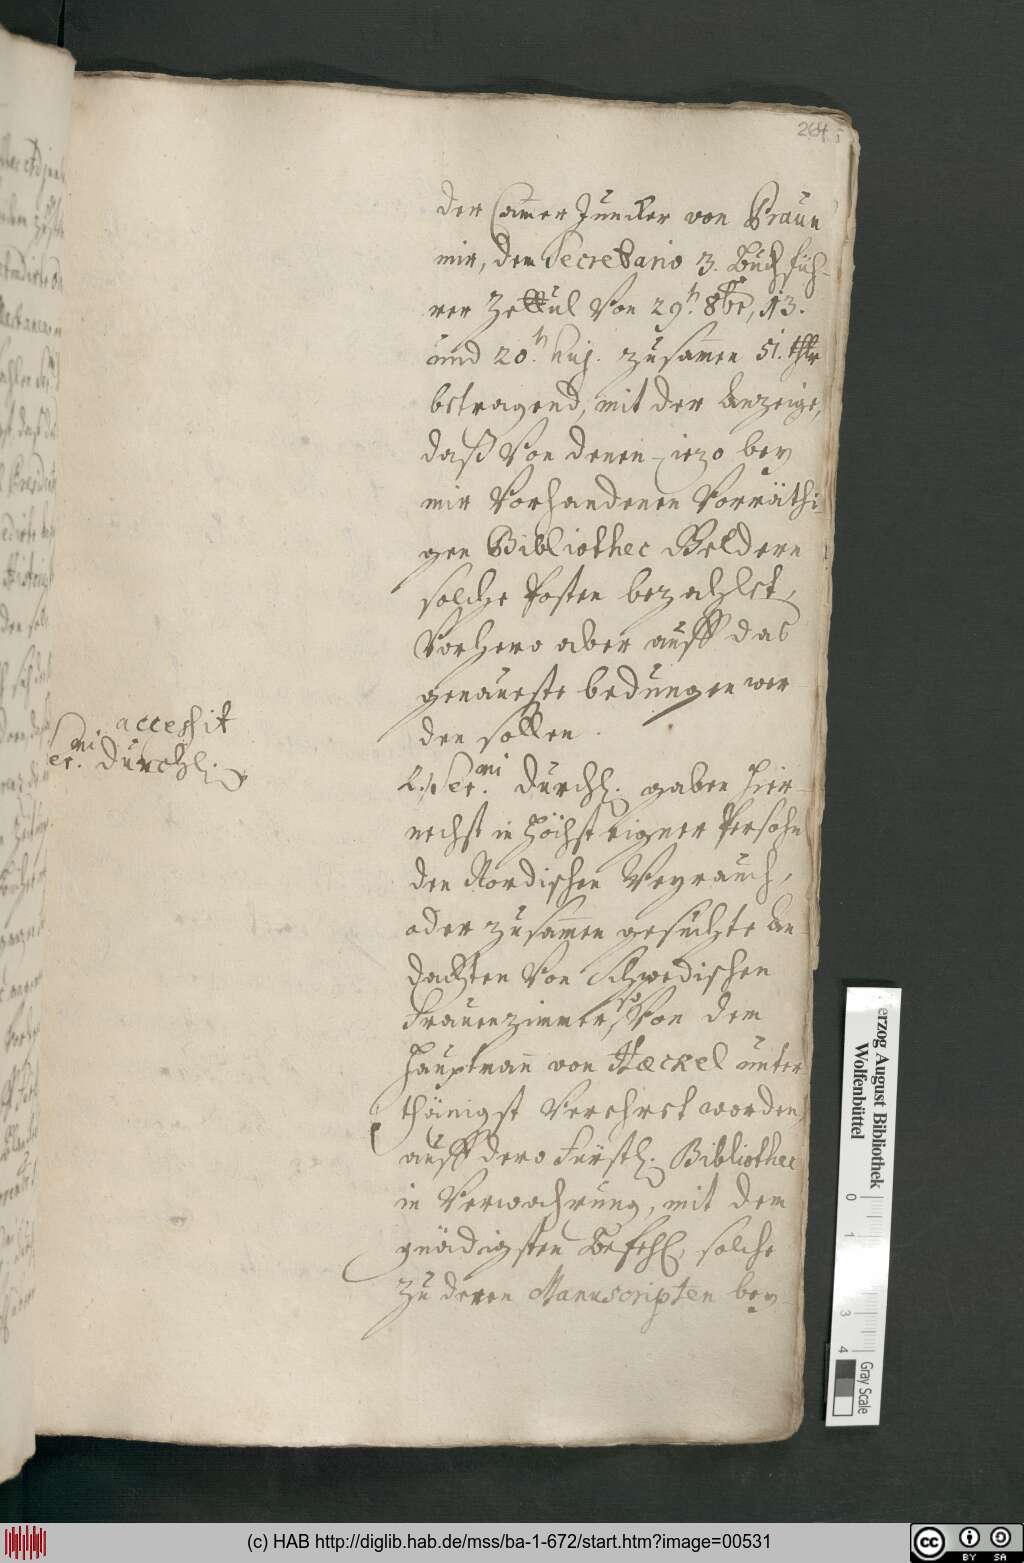 264
der Cam̄er Juncker von Praun
mir, dem Secretario 3. Buchfüh-
rer Zettul von 29.t 8br, 13.
und 20.t huj. zusam̄en 51. thlr
betragend, mit der Anzeige,
daß von denen iezo bey
mir vorhandenen Vorräthi-
gen Bibliothec Geldern
solche Posten bezahlet,
vorhero aber auff das
genaueste bedungen wer-
den sollen.
accessit
Ser.mi Durchl.
2. Ser.mi Durchl. gaben hier-
nechst in höchst eigner Persohn
den Nordischen Weyrauch,
oder zusam̄en gesuchte An-
dachten von Schwedischen
Frauenzimmer, so von dem
Hauptman̄ von Hæckel unter
thänigst verehret worden,
auff dero Fürstl. Bibliothec
in Verwahrung, mit dem
gnädigsten Befehl, solche
zu deren Manuscripten bey
Herzog August Bibliothek
Wolfenbüttel
0
1
3
4
Gray Scale
(c) HAB http://diglib.hab.de/mss/ba-1-672/start.htm?image=00531
cc BY SA